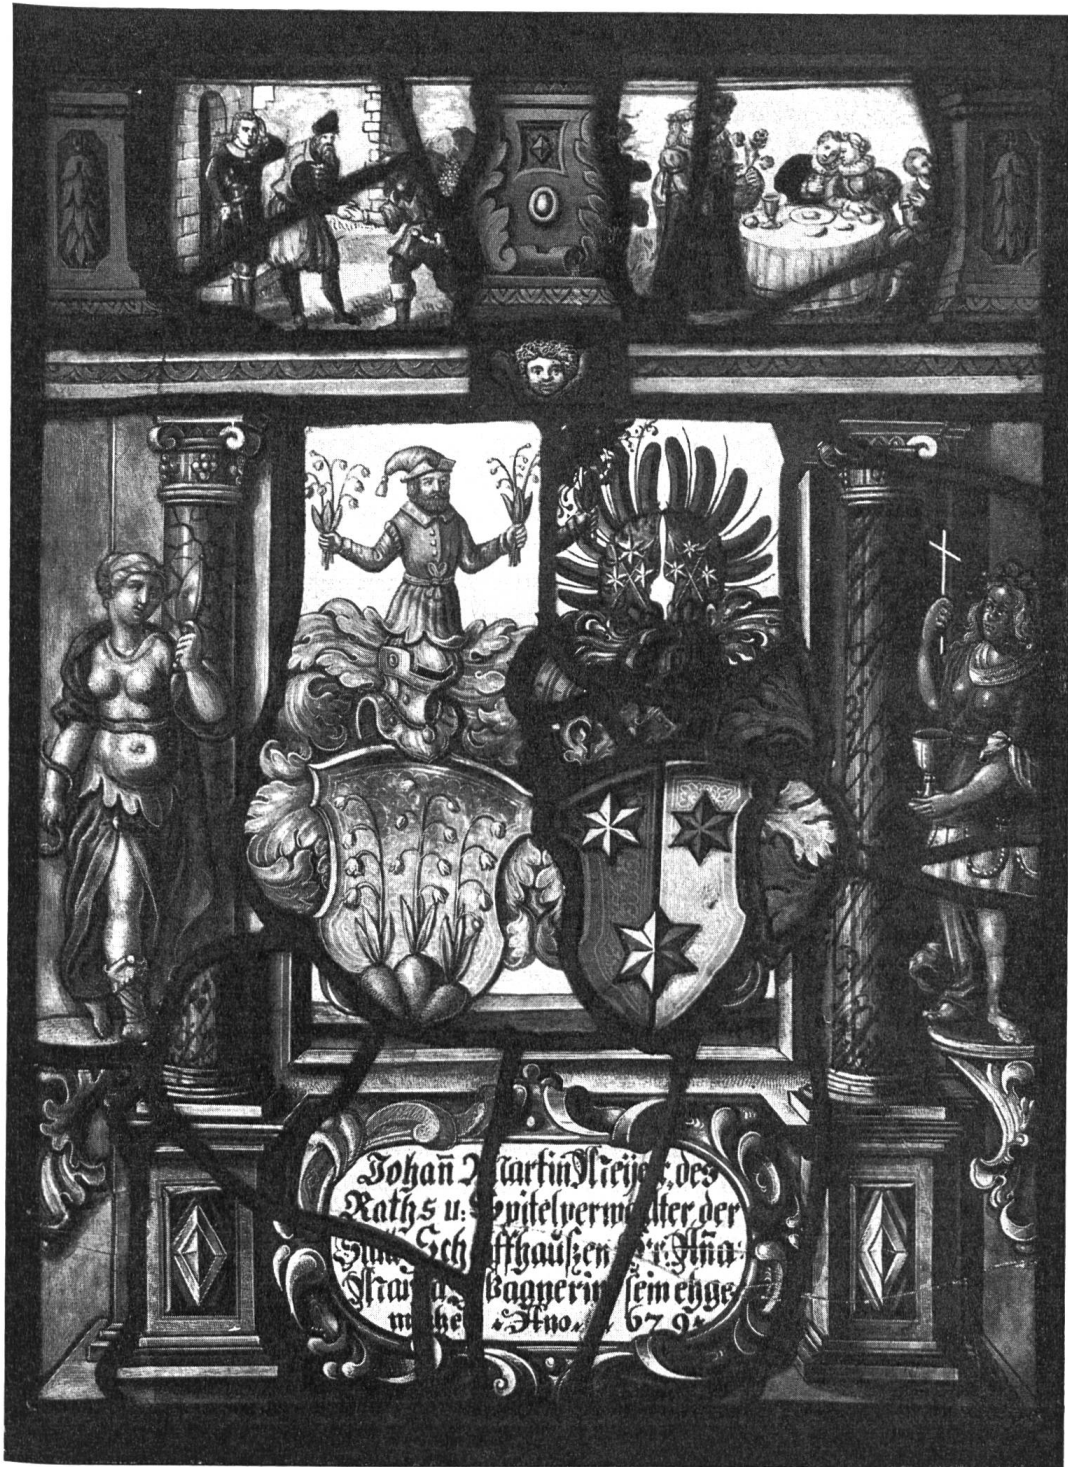 Johañ Martin Meijer, des
Raths u: Spitelverwalter der
Statt Schaffhaußen Fr. Añá
Maria Wagnerin sein ehge-
mahel Año. 1679